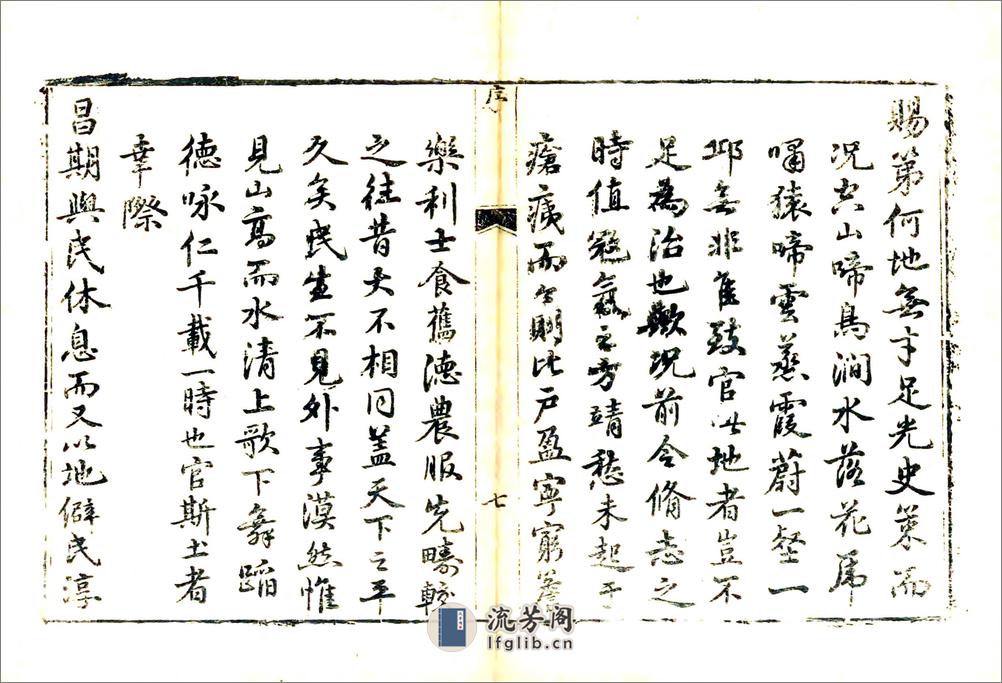 賜第何地無才足光史策而
况空山啼鳥澗水落花虎
嘯猿啼雲蒸霞蔚一壑一
邱無非隹致官此地者豈不
足為治也歟况前令脩志之
時值寇氛之方靖愁未起于
瘡痍而今則比戸盈寧窮簷
序
七
樂利士食舊德農服先疇較
之往昔大不相同蓋天下之平
久矣民生不見外事漠然惟
見山高而水清上歌下舞蹈
德咏仁千載一時也官斯土者
幸際
昌期與民休息而又以地僻民淳
流芳阁
lfglib.cn